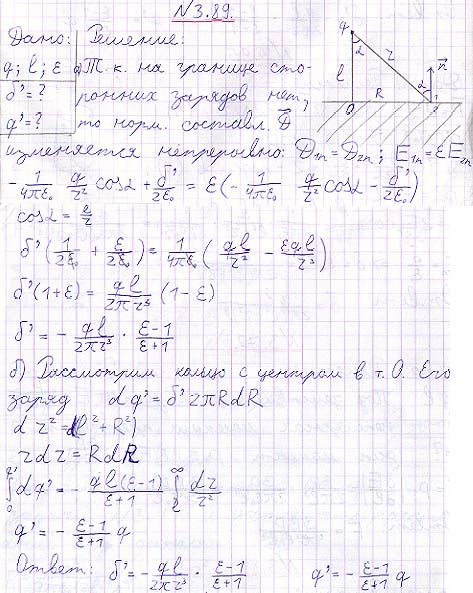 №3.89.
Дано: Решение:
q; l; ε а) Т. к. на границе сто-
σ' = ? ронних зарядов нет,
q' = ? то норм. составл. D⃗
изменяется непрерывно: D₁ₙ = D₂ₙ ; E₁ₙ = εE₂ₙ
-1/(4πε₀) q/r² cosα + σ'/(2ε₀) = ε(-1/(4πε₀) q/r² cosα - σ'/(2ε₀))
cosα = l/r
σ'(1/(2ε₀) + ε/(2ε₀)) = 1/(4πε₀) (ql/r³ - εql/r³)
σ'(1+ε) = ql/(2πr³) (1-ε)
σ' = - ql/(2πr³) · (ε-1)/(ε+1)
б) Рассмотрим кольцо с центром в т. О. Его
заряд dq' = σ' 2πRdR
dr² = d(l² + R²)
rdr = RdR
∫₀^q' dq' = - ql(ε-1)/(ε+1) ∫ₗ^∞ dr/r²
q' = - (ε-1)/(ε+1) q
Ответ: σ' = - ql/(2πr³) · (ε-1)/(ε+1) q' = - (ε-1)/(ε+1) q
q
α
l
r
R
α
n⃗
O
1
2